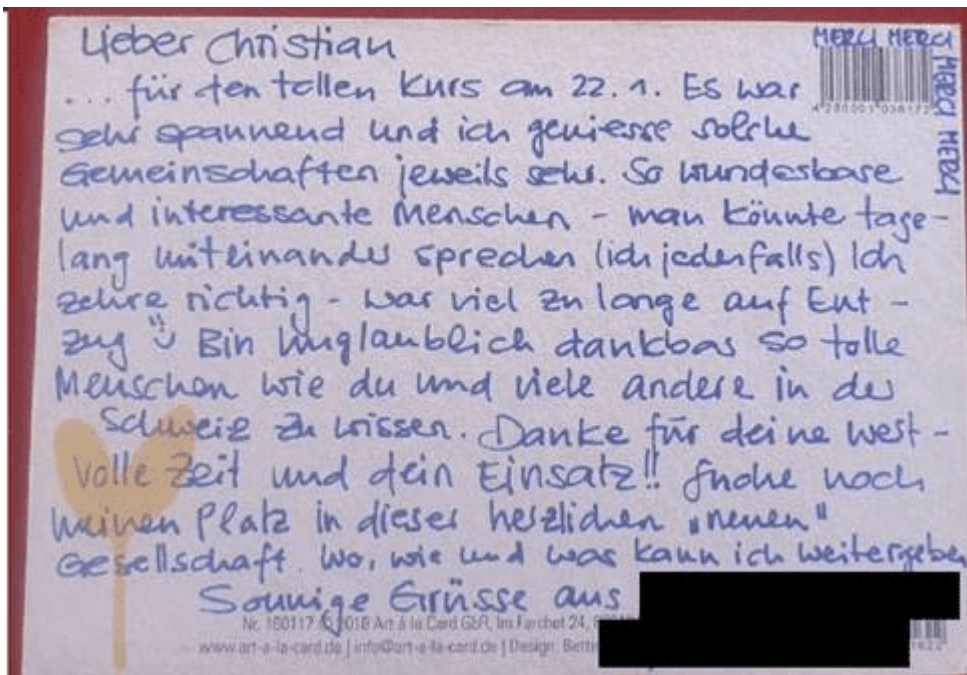 Lieber Christian
MERCI MERCI
MERCI MERCI
... für den tollen Kurs am 22.1. Es war
sehr spannend und ich geniesse solche
Gemeinschaften jeweils sehr. So wunderbare
und interessante Menschen - man könnte tage-
lang miteinander sprechen (ich jedenfalls) Ich
zehre richtig - war viel zu lange auf Ent-
zug Bin unglaublich dankbar so tolle
Menschen wie du und viele andere in der
Schweiz zu wissen. Danke für deine wert-
volle Zeit und dein Einsatz!! Suche noch
meinen Platz in dieser herzlichen „neuen"
Gesellschaft. Wo, wie und was kann ich weitergeben
Sonnige Grüsse aus
Nr. 160117 © 2018 Art à la Card GbR, Im Farchet 24,
www.art-a-la-card.de | info@art-a-la-card.de | Design: